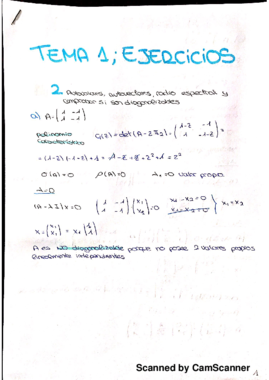 TEMA 1; EJERCICIOS
2. Autovalores, autovectores, radio espectral y
comprobar si son diagonalizables
a) A = ( 1 -1 / 1 -1 )
polinomio
característico
C(z) = det (A - zI2) = ( 1-z -1 / 1 -1-z ) =
= (1-z)(-1-z) + 1 = -1 - z + z + z² + 1 = z²
σ(A) = 0 ρ(A) = 0 λ1 = 0 valor propio
λ = 0
(A - λI) x = 0 ( 1 -1 / 1 -1 ) ( x1 / x2 ) = 0 x1 - x2 = 0 } x1 = x2
x = ( x1 / x1 ) = x1 ( 1 / 1 )
A es no diagonalizable porque no posee 2 valores propios
linealmente independientes
Scanned by CamScanner
1